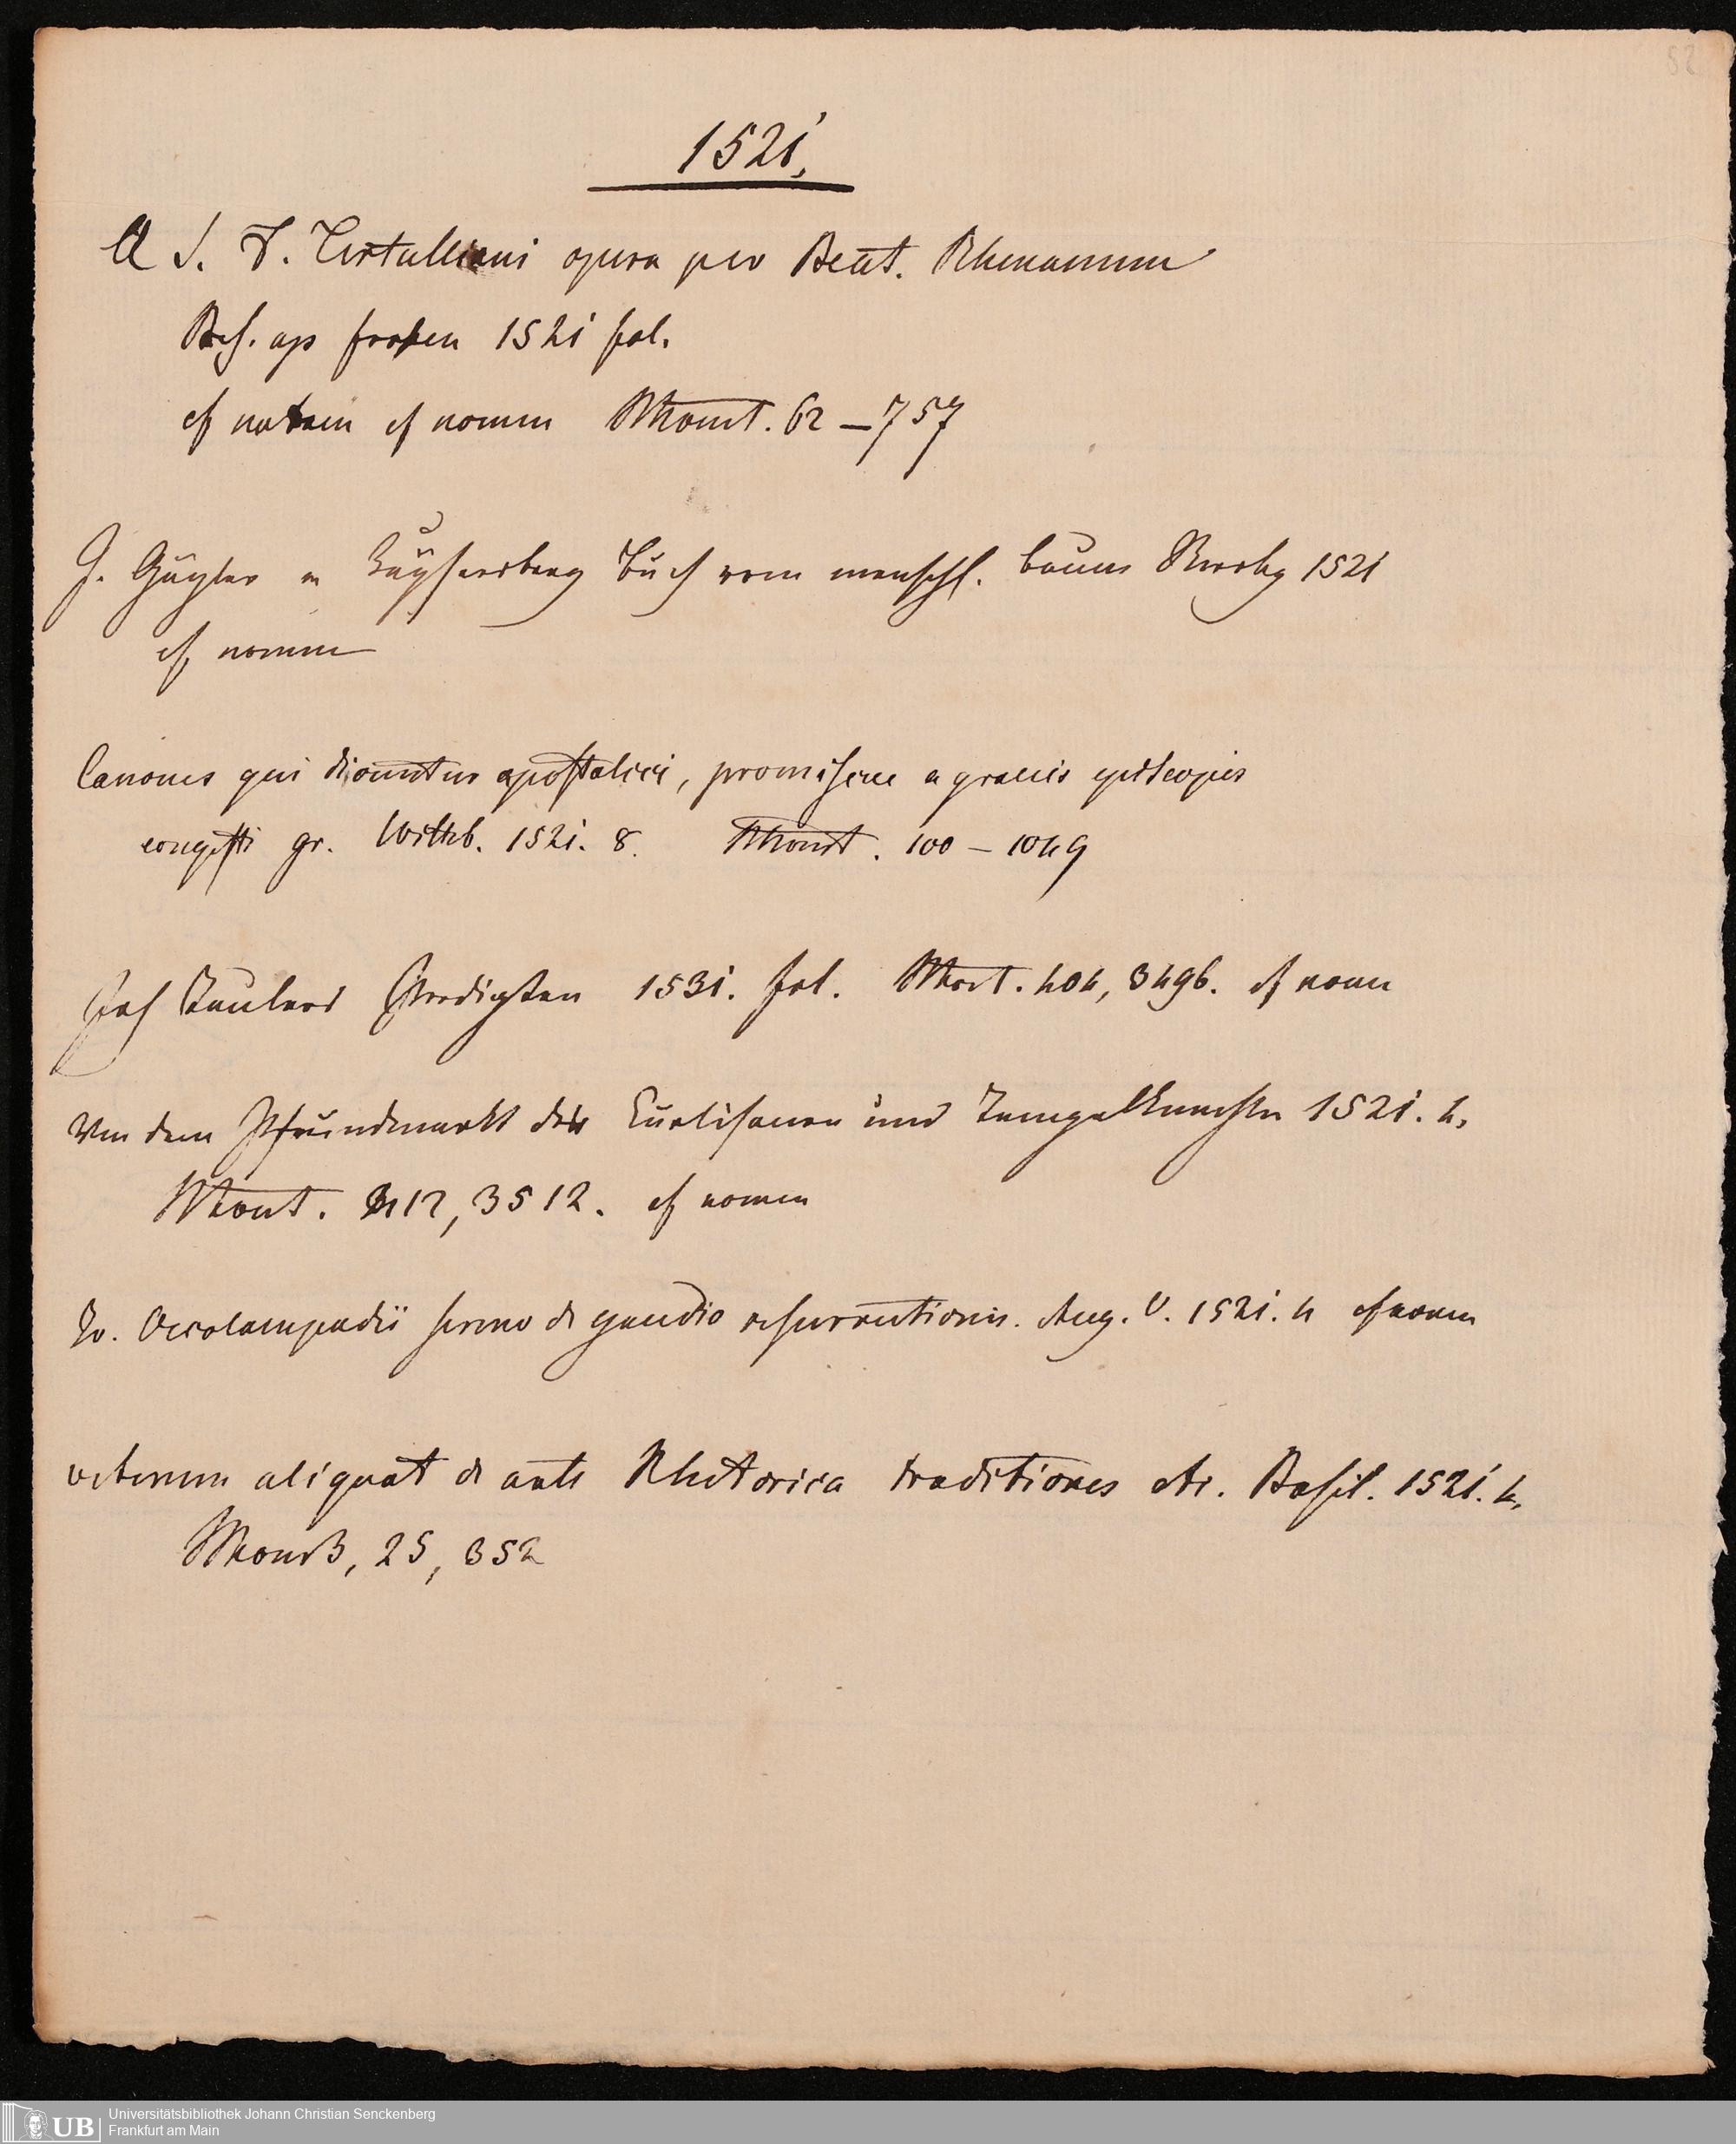 52
1521.
Q S. F. Tertulliani opera per Beat. Rhenanum
Bas. ap froben 1521 fol.
cf notam cf nomen Mont. 62 – 757
J. Gäyler v Käysersberg Buch vom menschl. baum Strasbg 1521
cf nomen
Canones qui dicuntur apostolici, promiscue a graecis episcopis
congesti gr. Witteb. 1521. 8. Mont. 100 – 1049
Joh Taulers Predigten 1531. fol. Mont. 404, 3496. cf nomen
Von dem Pfründmarkt der Curtisanen und Tempelknechten 1521. 4.
Mont. 412, 3512. cf nomen
Jo. Oecolampadii sermo de gaudio resurrectionis. Aug. V. 1521. 4 cf nomen
veterum aliquot de arte Rhetorica traditiones etc. Basil. 1521. 4.
25, 352
UB Universitätsbibliothek Johann Christian Senckenberg
Frankfurt am Main